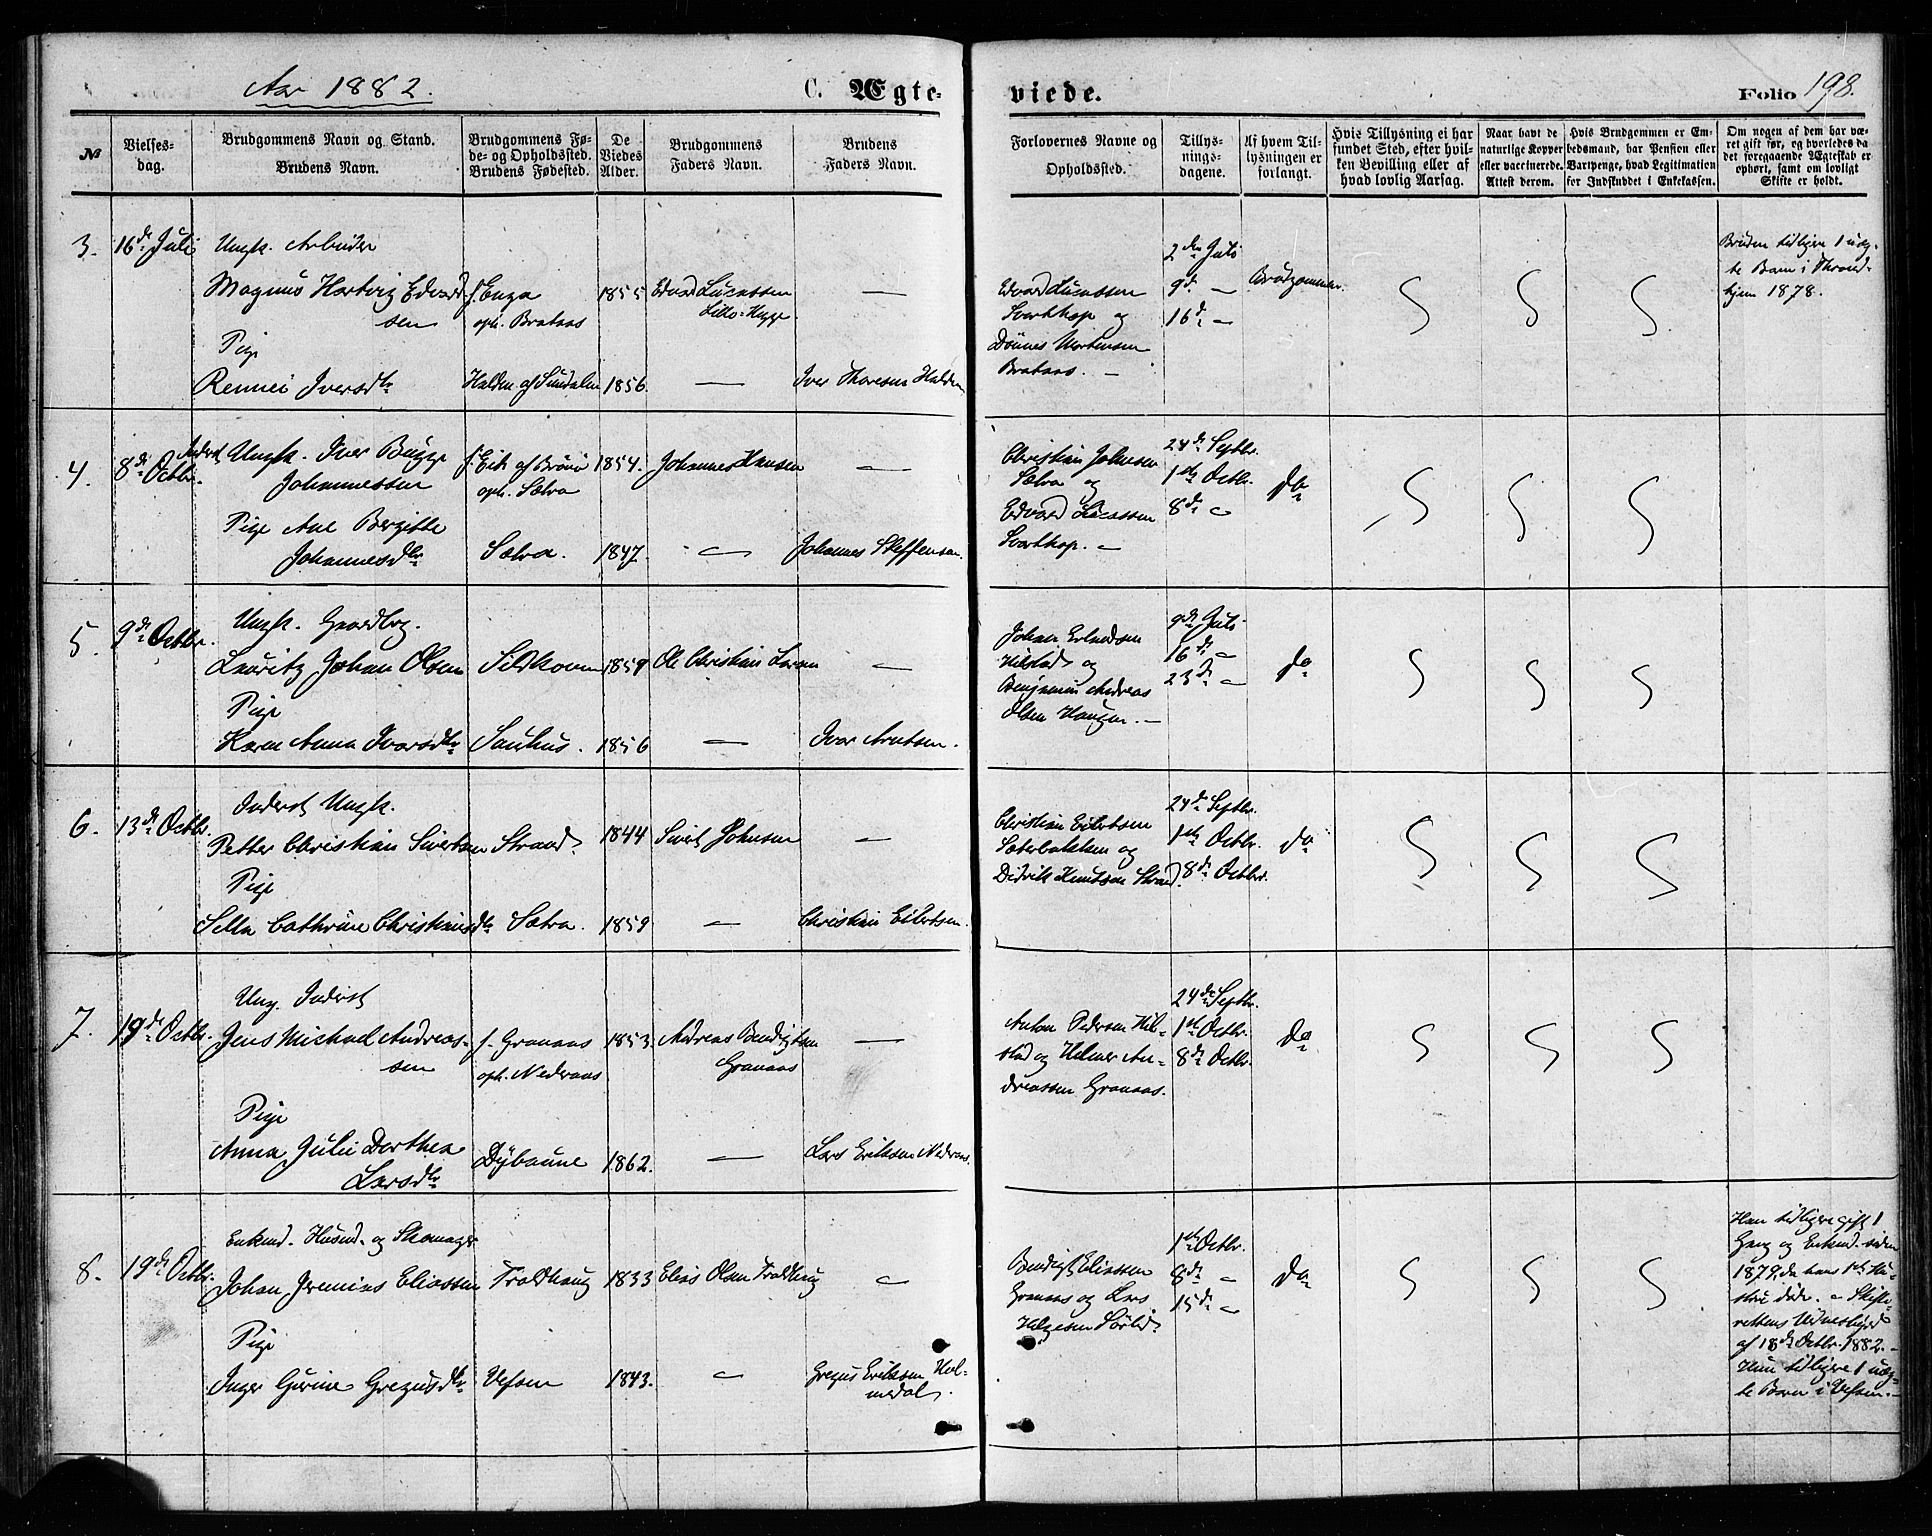 Aar 1882.
C. Ægte-
viede.
Folio 198.
№
Vielses-
dag.
Brudgommens Navn og Stand.
Brudens Navn.
Brudgommens Fø-
de- og Opholdssted.
Brudens Fødested.
De
Viedes
Alder.
Brudgommens
Faders Navn.
Brudens
Faders Navn.
Forlovernes Navne og
Opholdssted.
Tillys-
nings-
dagene.
Af hvem Til-
lysningen er
forlangt.
Hvis Tillysning ei har
fundet Sted, efter hvil-
ken Bevilling eller af
hvad lovlig Aarsag.
Naar havt de
naturlige Kopper
eller vaccinerede.
Attest derom.
Hvis Brudgommen er Em-
bedsmand, har Pension eller
Vartpenge, hvad Legitimation
for Indskuddet i Enkekassen.
Om nogen af dem har væ-
ret gift før, og hvorledes da
det foregaaende Ægteskab er
ophørt, samt om lovligt
Skifte er holdt.
3.
16de Juli
Ungk. Arbeider
Magnus Hartvig Edvard-
sen
Pige
Rennei Iversdtr
f. Enga
oph. Brataas
Halden af Sundalen
1855
1856.
Edvard Lucassen
Lille-Hegge
—
—
Iver Thoresen Halden
Edvard Lucassen
Svarthop og
Dønnes Mortensen
Brataas. —
2den Juli
9de —
16de —
Brudgommen.
Bruden tidligere 1 uæg-
te Barn i Thrond-
hjem 1878.
4.
8de Octbr.
Inderst Ungk. Iver Bugge
Johannessen
Pige Ane Bergitte
Johannesdtr
f. Eik af Brønø
oph. Sælva
Sælva.
1854.
1847.
Johannes Hansen
—
—
Johannes Steffensen.
Christian Johnsen
Sælva og
Edvard Lucassen
Svarthop. —
24de Septbr.
1ste Octbr.
8de —
do
5.
9de Octbr.
Ungk. Gaardbrg.
Lauritz Johan Olsen
Pige
Karen Anna Ivarsdtr
Sildhoven
Sauhus.
1859
1856
Ole Christian Larsen
—
—
Ivar Arntsen.
Johan Erlandsen
Hilstad og
Benjamin Andreas
Olsen Haugen. —
9de Juli
16de —
23de —
do
6.
13de Octbr.
Inderst Ungk.
Petter Christian Sivertsen
Pige
Sella Cathrine Christiansdtr
Strand.
Sælva.
1844
1859
Sivert Johnsen
—
—
Christian Eilertsen.
Christian Eilertsen
Sæterbakken og
Didrik Knutsen Strand.
24de Septbr.
1ste Octbr.
8de Octbr.
do
7.
19de Octbr.
Ung. Inderst
Jens Michael Andreas-
sen
Pige
Anna Julie Dorthea
Larsdtr
f. Granaas
oph. Nederaas
Dybaune
1853.
1862.
Andreas Bendigtsen
Granaas
—
—
Lars Eriksen Nederaas.
Anton Pedersen Hil-
stad og Helmer An-
dreassen Granaas.
24de Septbr.
1ste Octbr.
8de Octbr.
do
8.
19de Octbr.
Enkmd. Husmd. og Skomager
Johan Jeremias Eliassen
Pige
Inger Gurine Gregusdtr
Troldhaug
Vefsen
1833
1843.
Elias Olsen Troldhaug
—
—
Gregus Eriksen Hol-
medal.
Bendigt Eliassen
Granaas og Lars
Helgesen Sørlid.
1ste Octbr.
8de —
15de —
do
Han tidligere gift 1
Gang og Enkmd. siden
1879, da hans 1ste Hu-
stru døde. — Skifte-
rettens Vidnesbyrd
af 18de Octbr. 1882. —
Hun tidligere 1 uæg-
te Barn i Vefsen. —